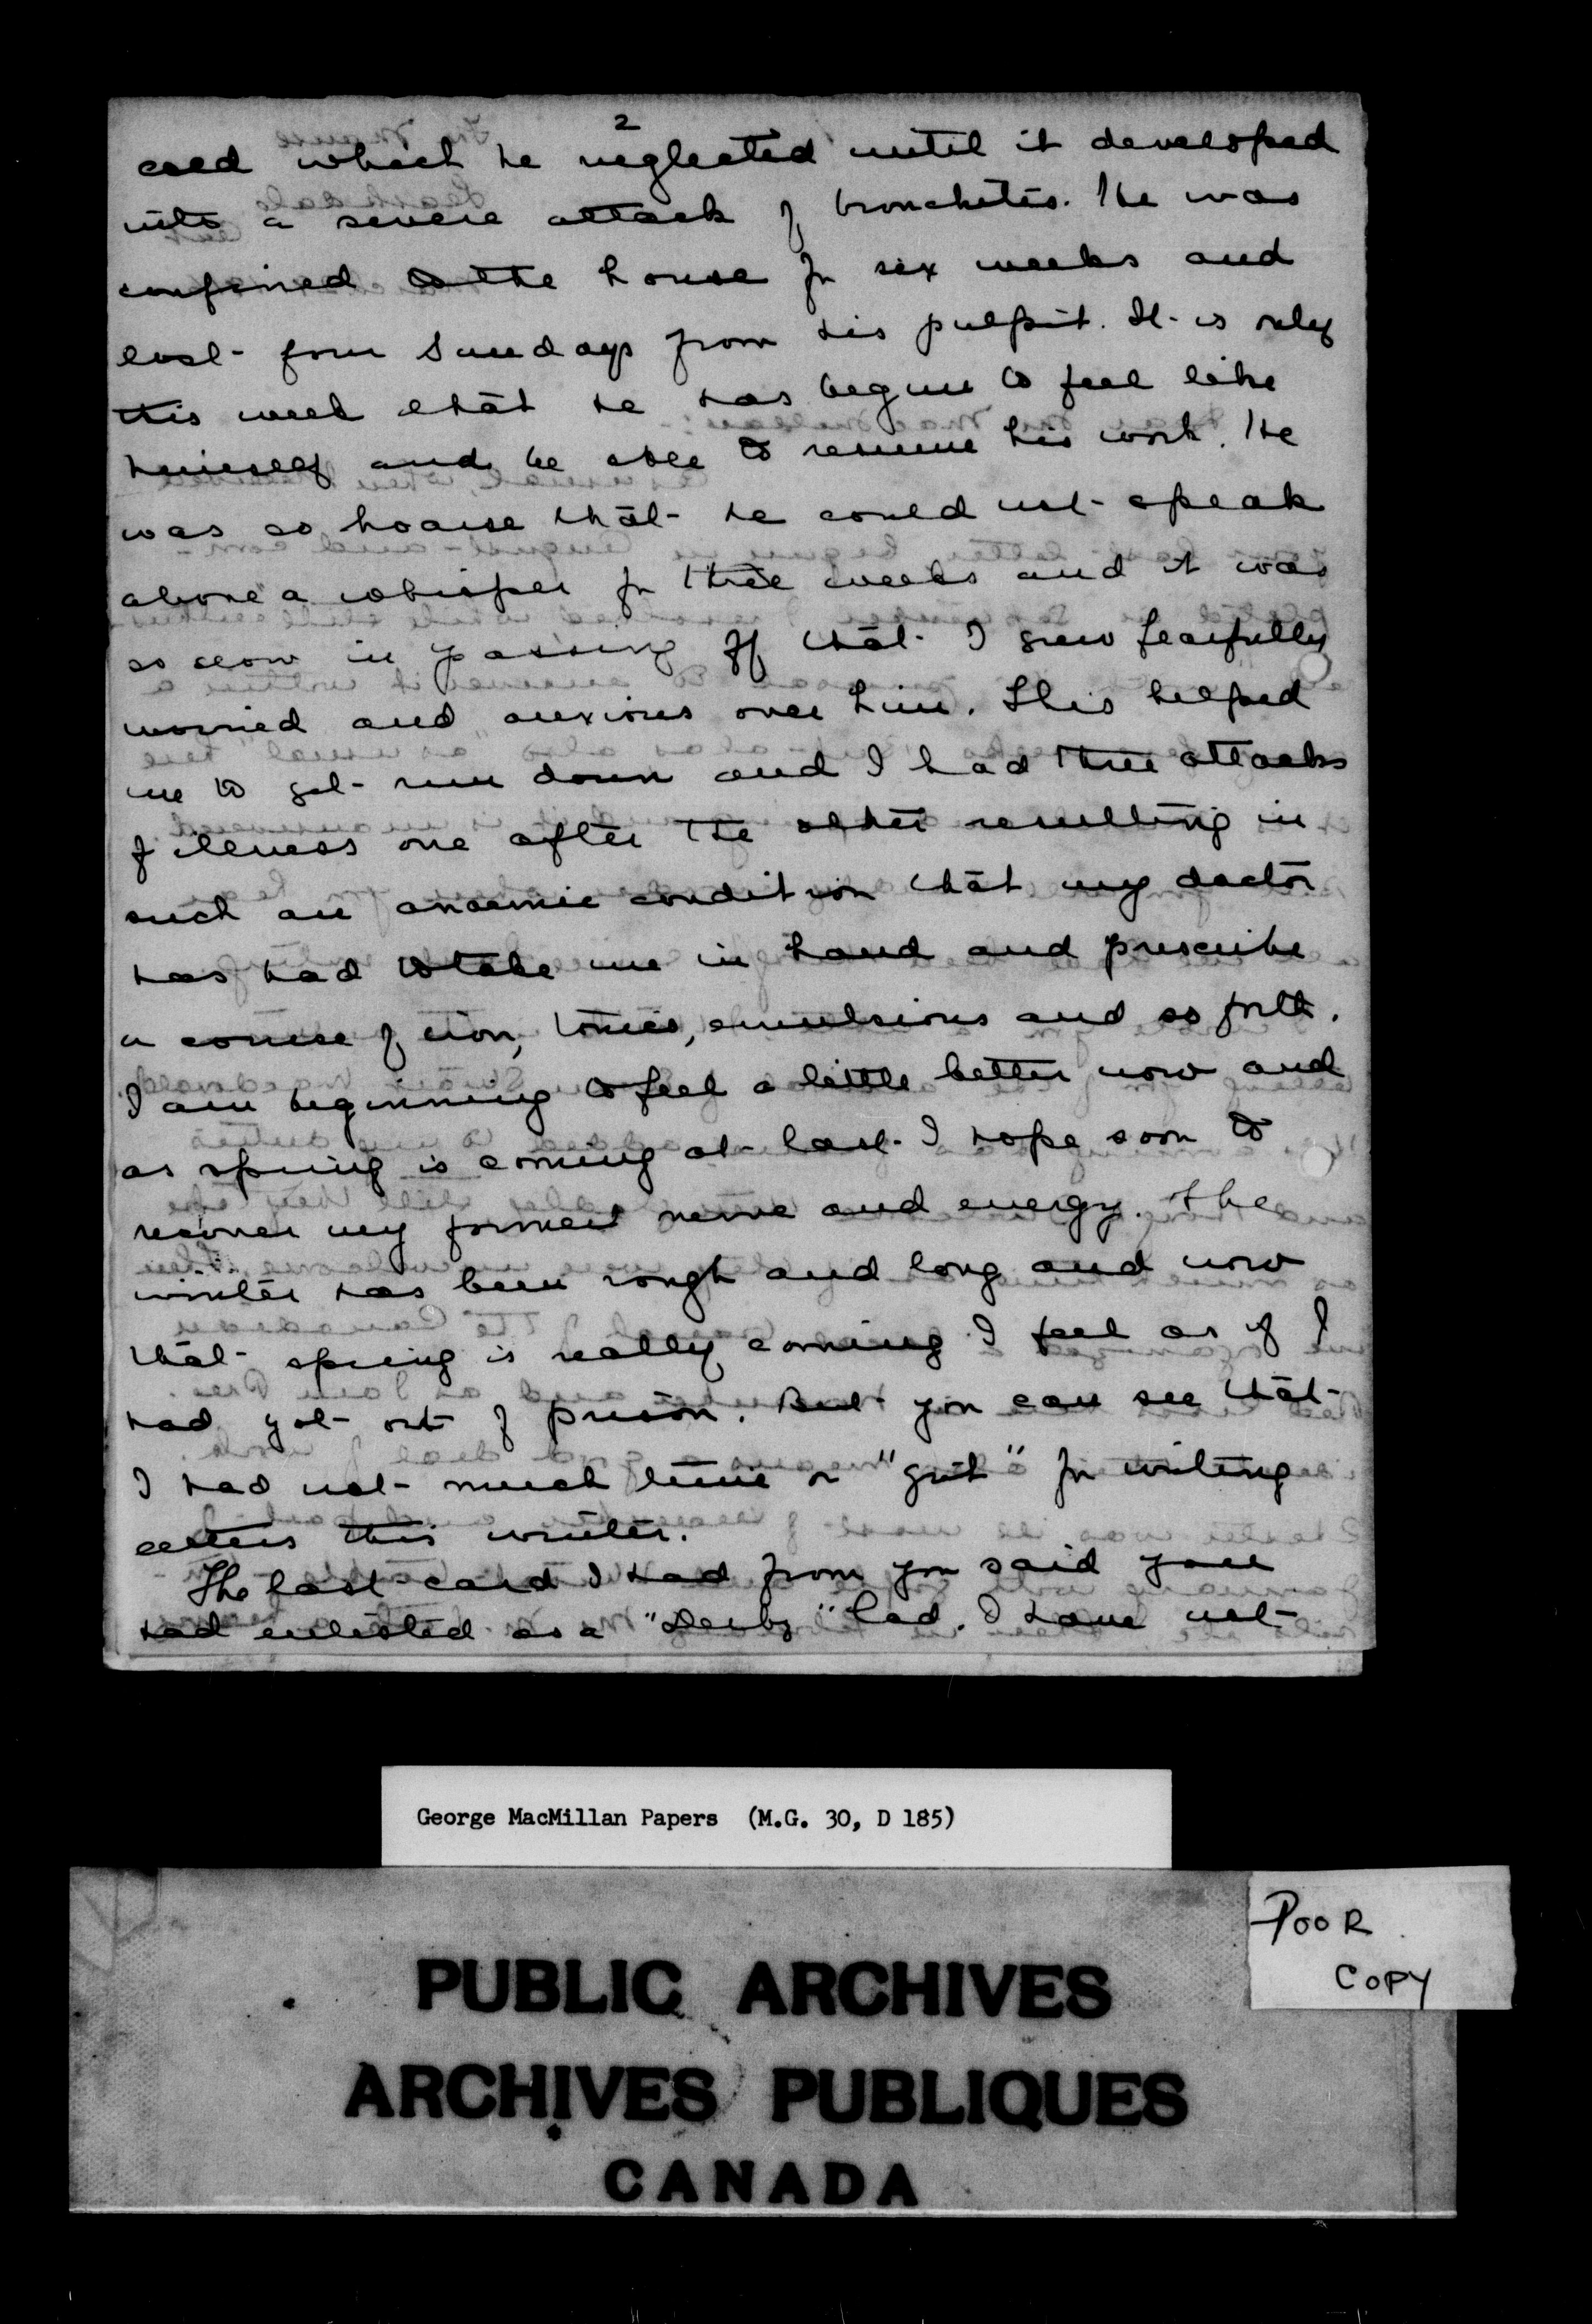 2
cold which he neglected until it developed
into a severe attack of bronchitis. He was
confined to the house for six weeks and
lost four Sundays from his pulpit. It is only
this week that he has begun to feel like
himself and be able to resume his work. He
was so hoarse that he could not speak
above a whisper for three weeks and it was
so slow in passing off that I grew fearfully
worried and anxious over him. This helped
me to get run down and I had three attacks
of illness one after the other resulting in
such an anaemic condition that my doctor
has had to take me in hand and prescribe
a course of iron, tonics, emulsions and so forth.
I am beginning to feel a little better now and
as spring is coming at last I hope soon to
recover my former nerve and energy. The
winter has been rough and long and now
that spring is really coming I feel as if I
had got out of prison. But you can see that
I had not much time or "grit" for writing
letters this winter.
The last card I had from you said you
had enlisted as a "Derby" lad. I have not
George MacMillan Papers (M.G. 30, D 185)
POOR
COPY
PUBLIC ARCHIVES
ARCHIVES PUBLIQUES
CANADA